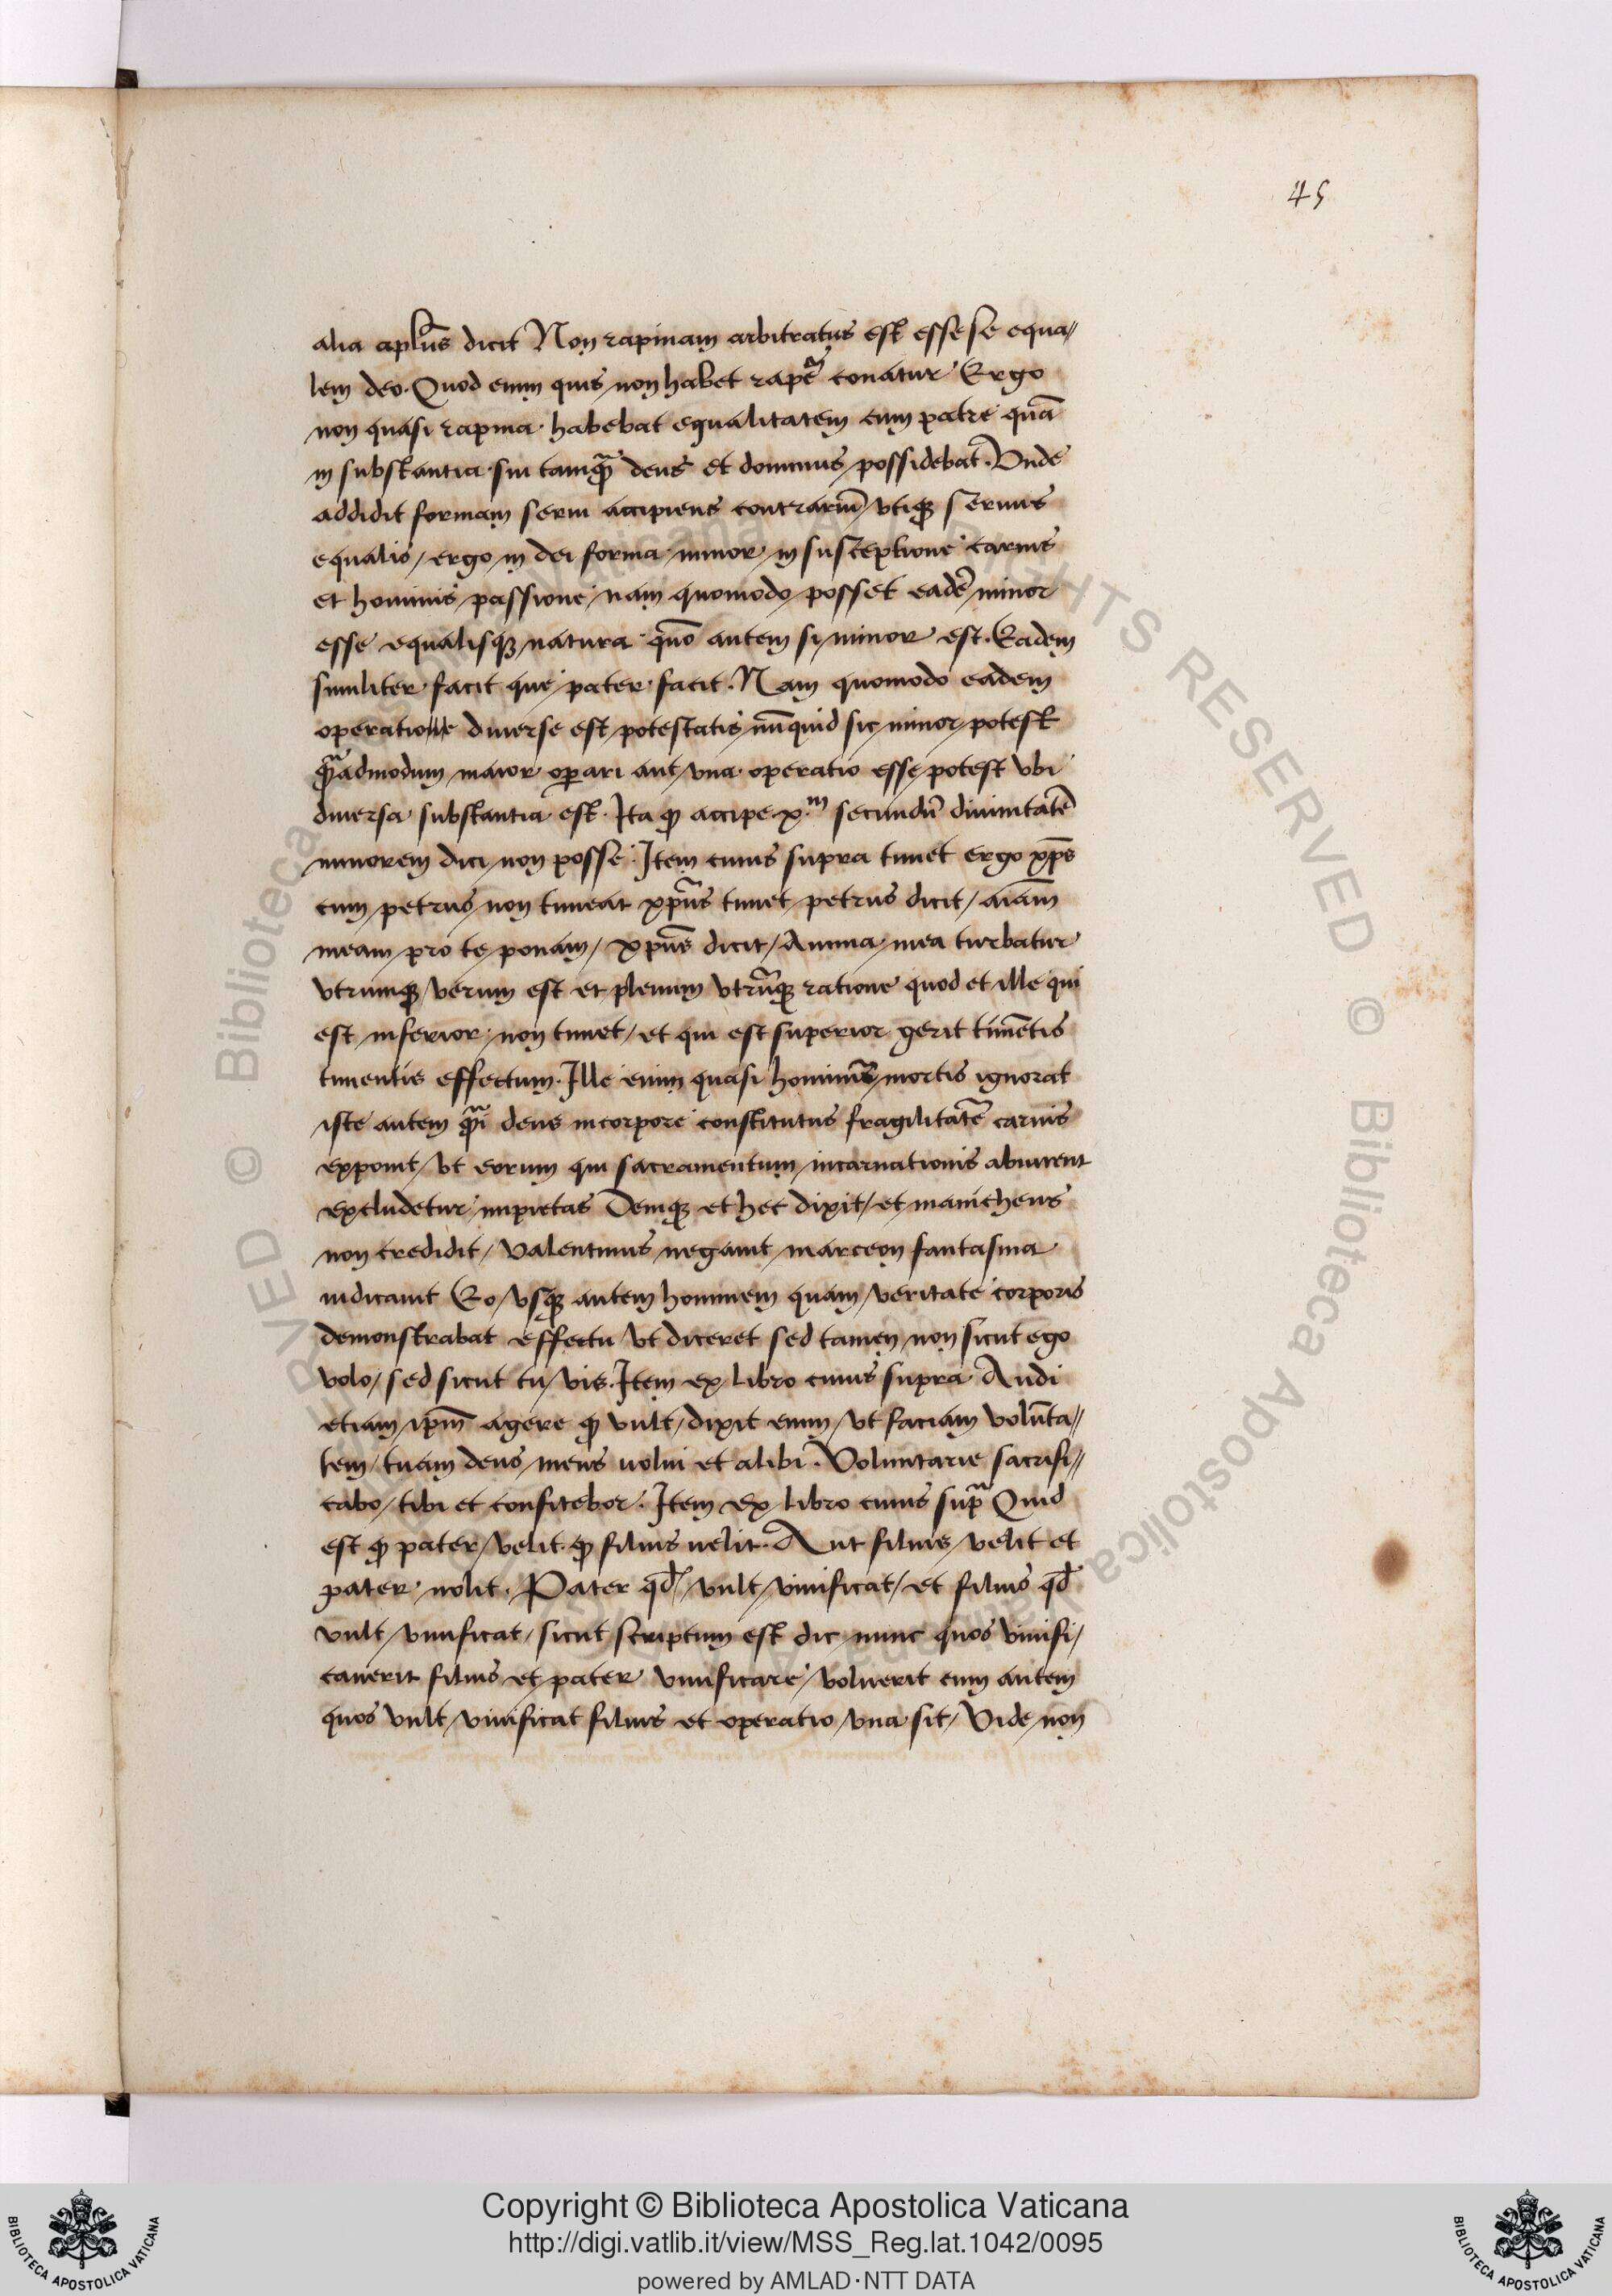 45
alia aplūs dicit Non rapinam arbitratus est esse se equa//
lem deo. Quod enim quis non habet rapẽ conatur Ergo
non quasi rapina habebat equalitatem cum patre quā
in substantia sui tamq̃ deus et dominus possidebat. Unde
addidit formam serui accipiens contrariū utiq̃ seruus
equalis / ergo in dei forma minor in susceptione carnis
et hominis passione nam quomodo posset eadē minor
esse equalisq̃ natura quō autem si minor est. Eadem
similiter facit que pater facit. Nam quomodo eadem
operatione diuerse est potestatis nūquid sic minor potest
q̃admodum maior operari aut una operatio esse potest ubi
diuersa substantia est. Ita q̃ accipe x.m secundū diuinitatē
minorem dici non posse. Item cuius supra timet ergo xp̄s
cum petrus non timeat xp̄us timet petrus dicit / aīam
meam pro te ponam / xp̄us dicit / Anima mea turbatur
utrumq̃ uerum est et plenum utrūq̃ ratione quod et ille qui
est inferior non timet / et qui est superior gerit timētis
timentis effectum. Ille enim quasi hominis mortis ignorat
iste autem q̃i deus in corpore constitutus fragilitatē carnis
exponit / ut eorum qui sacramentum incarnationis abiurent
excludetur impietas Deniq̃ et hec dixit / et manicheus
non credidit / Valentinus negauit marceon fantasma
iudicauit Eo usq̃ autem hominem quam ueritate corporis
demonstrabat effectu ut diceret sed tamen non sicut ego
volo / sed sicut tu vis. Item ex libro cuius supra Audi
etiam ip̄m agere q̃ vult / dixit enim / ut faciam volūta//
tem / tuam deus meus uolui et alibi. Voluntarie sacrifi//
cabo / tibi et confitebor. Item ex libro cuius sup̃ Quid
est q̃ pater velit. q̃ filius uelit. Aut filius velit et
pater nolit. Pater qd̄ vult viuificat / et filius qd̄
vult viuificat / sicut scriptum est dic nunc quos viuifi/
cauerit filius et pater viuificare / voluerit cum autem
quos vult viuificat filius et operatio una sit / Vide non
Copyright © Biblioteca Apostolica Vaticana
http://digi.vatlib.it/view/MSS_Reg.lat.1042/0095
powered by AMLAD·NTT DATA
BIBLIOTECA APOSTOLICA VATICANA
BIBLIOTECA APOSTOLICA VATICANA